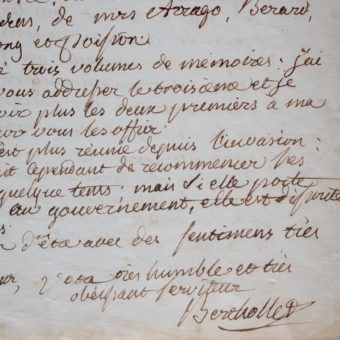 de mrs Arago, Berard,
et Poisson
trois volumes de mémoires : j'ai
vous addresser le troisieme et je
plus les deux premiers a ma
pour vous les offrir
plus réunie depuis l'invasion :
cependant de recommencer ses
quelque tems. mais si elle porte
au gouvernement, elle est
avec des sentimens très
votre très humble et très
obeissant serviteur
Berthollet